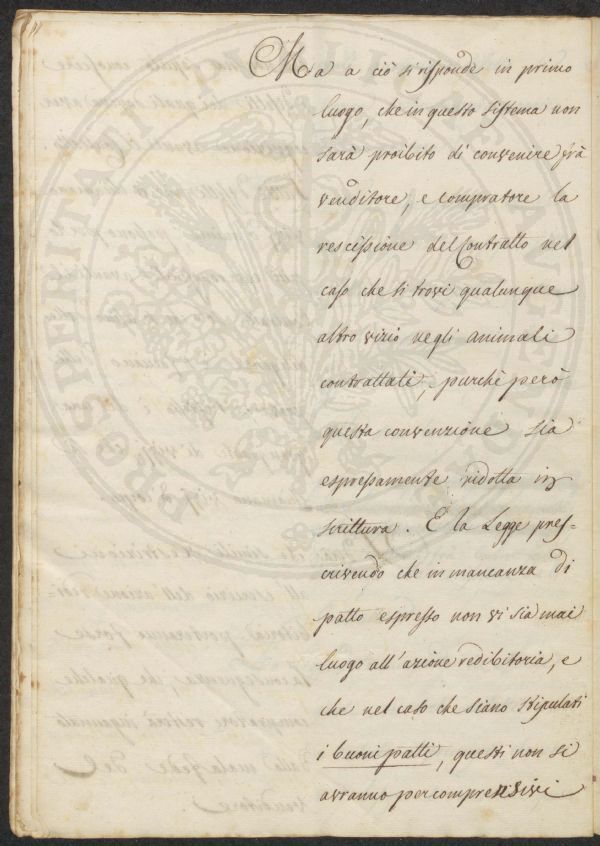 Ma a ciò si risponde in primo
luogo, che in questo sistema non
sarà proibito di convenire frà
venditore, e compratore la
rescissione del Contratto nel
caso che si trovi qualunque
altro vizio negli animali
contrattati, purchè però
questa convenzione sia
espressamente ridotta in
scrittura. E la Legge pres-
crivendo che in mancanza di
patto espresso non vi sia mai
luogo all'azione redibitoria, e
che nel caso che siano stipulati
i buoni patti, questi non si
avranno per comprensivi
PROSPERITATI PUBLICAE AUGENDAE